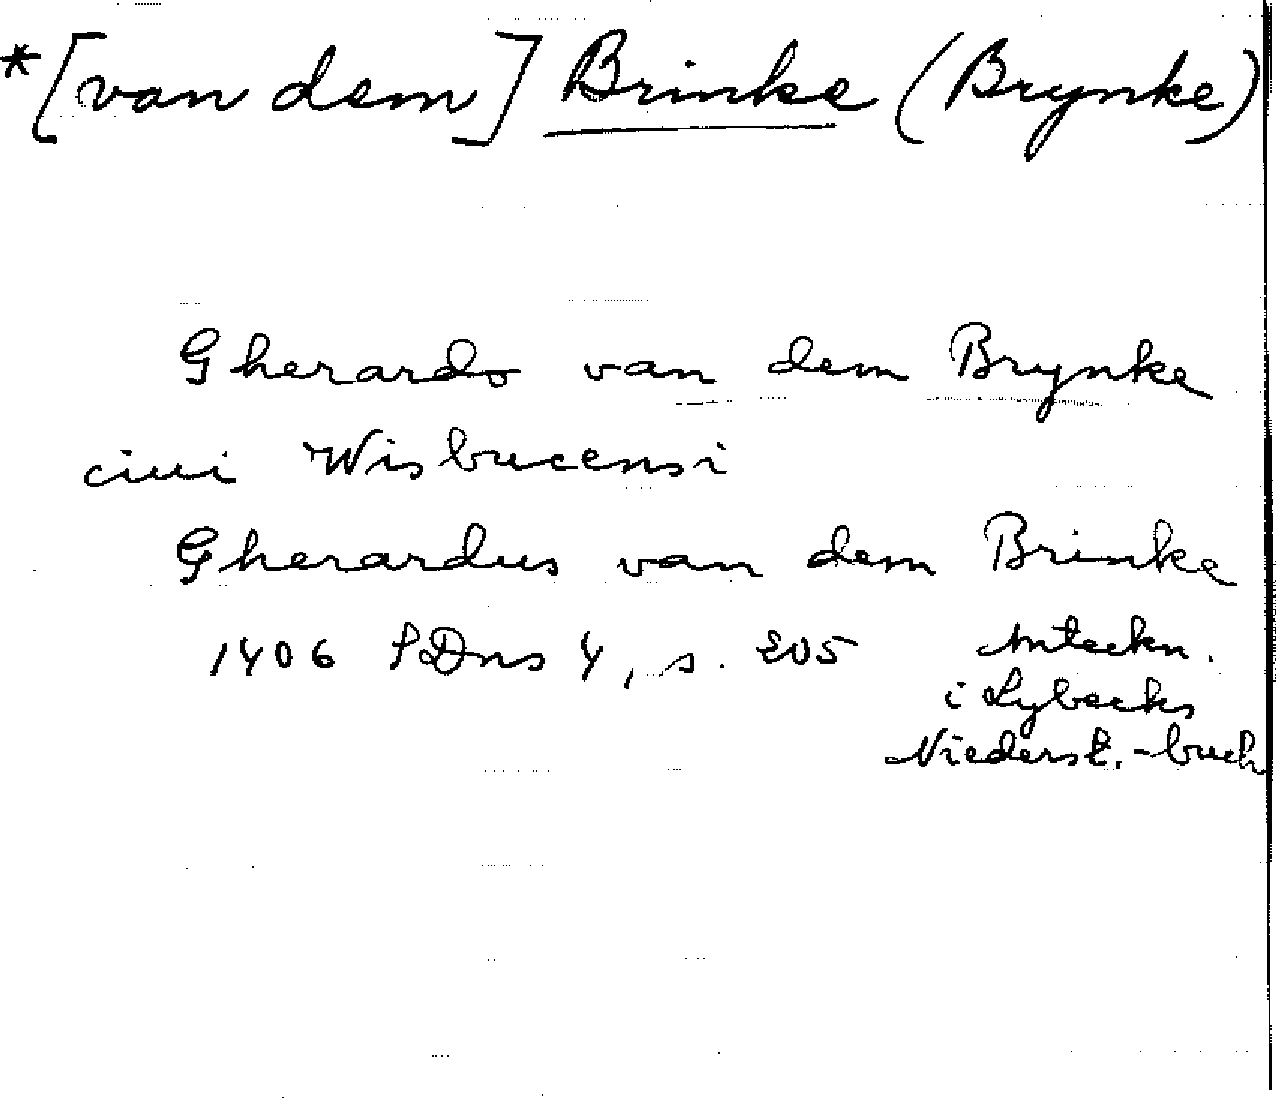 *[van dem] Brinke (Brynke)
Gherardo van dem Brynke
ciui Wisbucensi
Gherardus van dem Brinke
1406 SDns 4, s. 205 Anteckn.
i Lybecks
Niederst.-buch